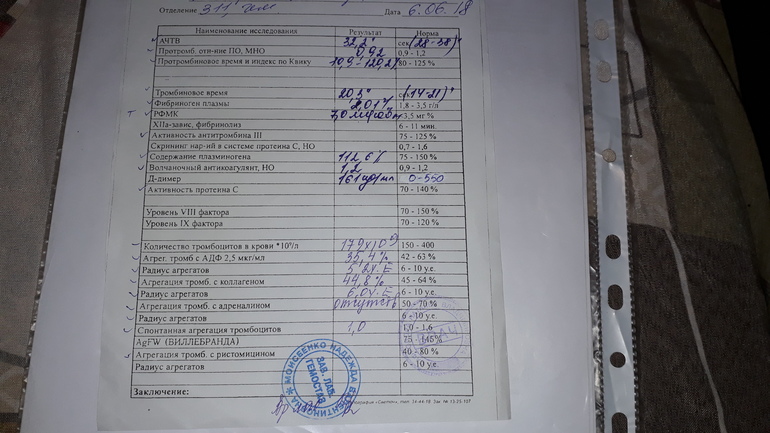 Отделение 311, гем Дата 6.06.18
Наименование исследования Результат Норма
АЧТВ 32,2" сек (28-38)"
Протромб. отн-ние ПО, МНО 0,92 0,9 - 1,2
Протромбиновое время и индекс по Квику 10,9 - 120,2% 80 - 125 %
Тромбиновое время 20,5" (14-21)"
Фибриноген плазмы 2,01 1,8 - 3,5 г/л
РФМК 7,0 -3,5 мг %
XIIа-завис, фибринолиз 6 - 11 мин.
Активность антитромбина III 75 - 125 %
Скрининг нар-ий в системе протеина С, НО 0,7 - 1,6
Содержание плазминогена 112,6% 75 - 150 %
Волчаночный антикоагулянт, НО 1,2 0,9 - 1,2
Д-димер 161 0-550
Активность протеина С 70 - 140 %
Уровень VIII фактора 70 - 150 %
Уровень IX фактора 70 - 120 %
Количество тромбоцитов в крови *10⁹/л 179x10⁹ 150 - 400
Агрег. тромб с АДФ 2,5 мкг/мл 35,4% 42 - 63 %
Радиус агрегатов 5,2у.Е 6 - 10 у.е.
Агрегация тромб. с коллагеном 44,8% 45 - 64 %
Радиус агрегатов 6,0у.Е 6 - 10 у.е.
Агрегация тромб. с адреналином отсутств 50 - 70 %
Радиус агрегатов 6 - 10 у.е.
Спонтанная агрегация тромбоцитов 1,0 1,0 - 1,6
AgFW (ВИЛЛЕБРАНДА) 75 - 145%
Агрегация тромб. с ристомицином 40 - 80 %
Радиус агрегатов 6 - 10 у.е.
МОИСЕЕНКО НАДЕЖДА ВАЛЕНТИНОВНА
ЗАВ. ЛАБ. ГЕМОСТАЗА
Заключение: